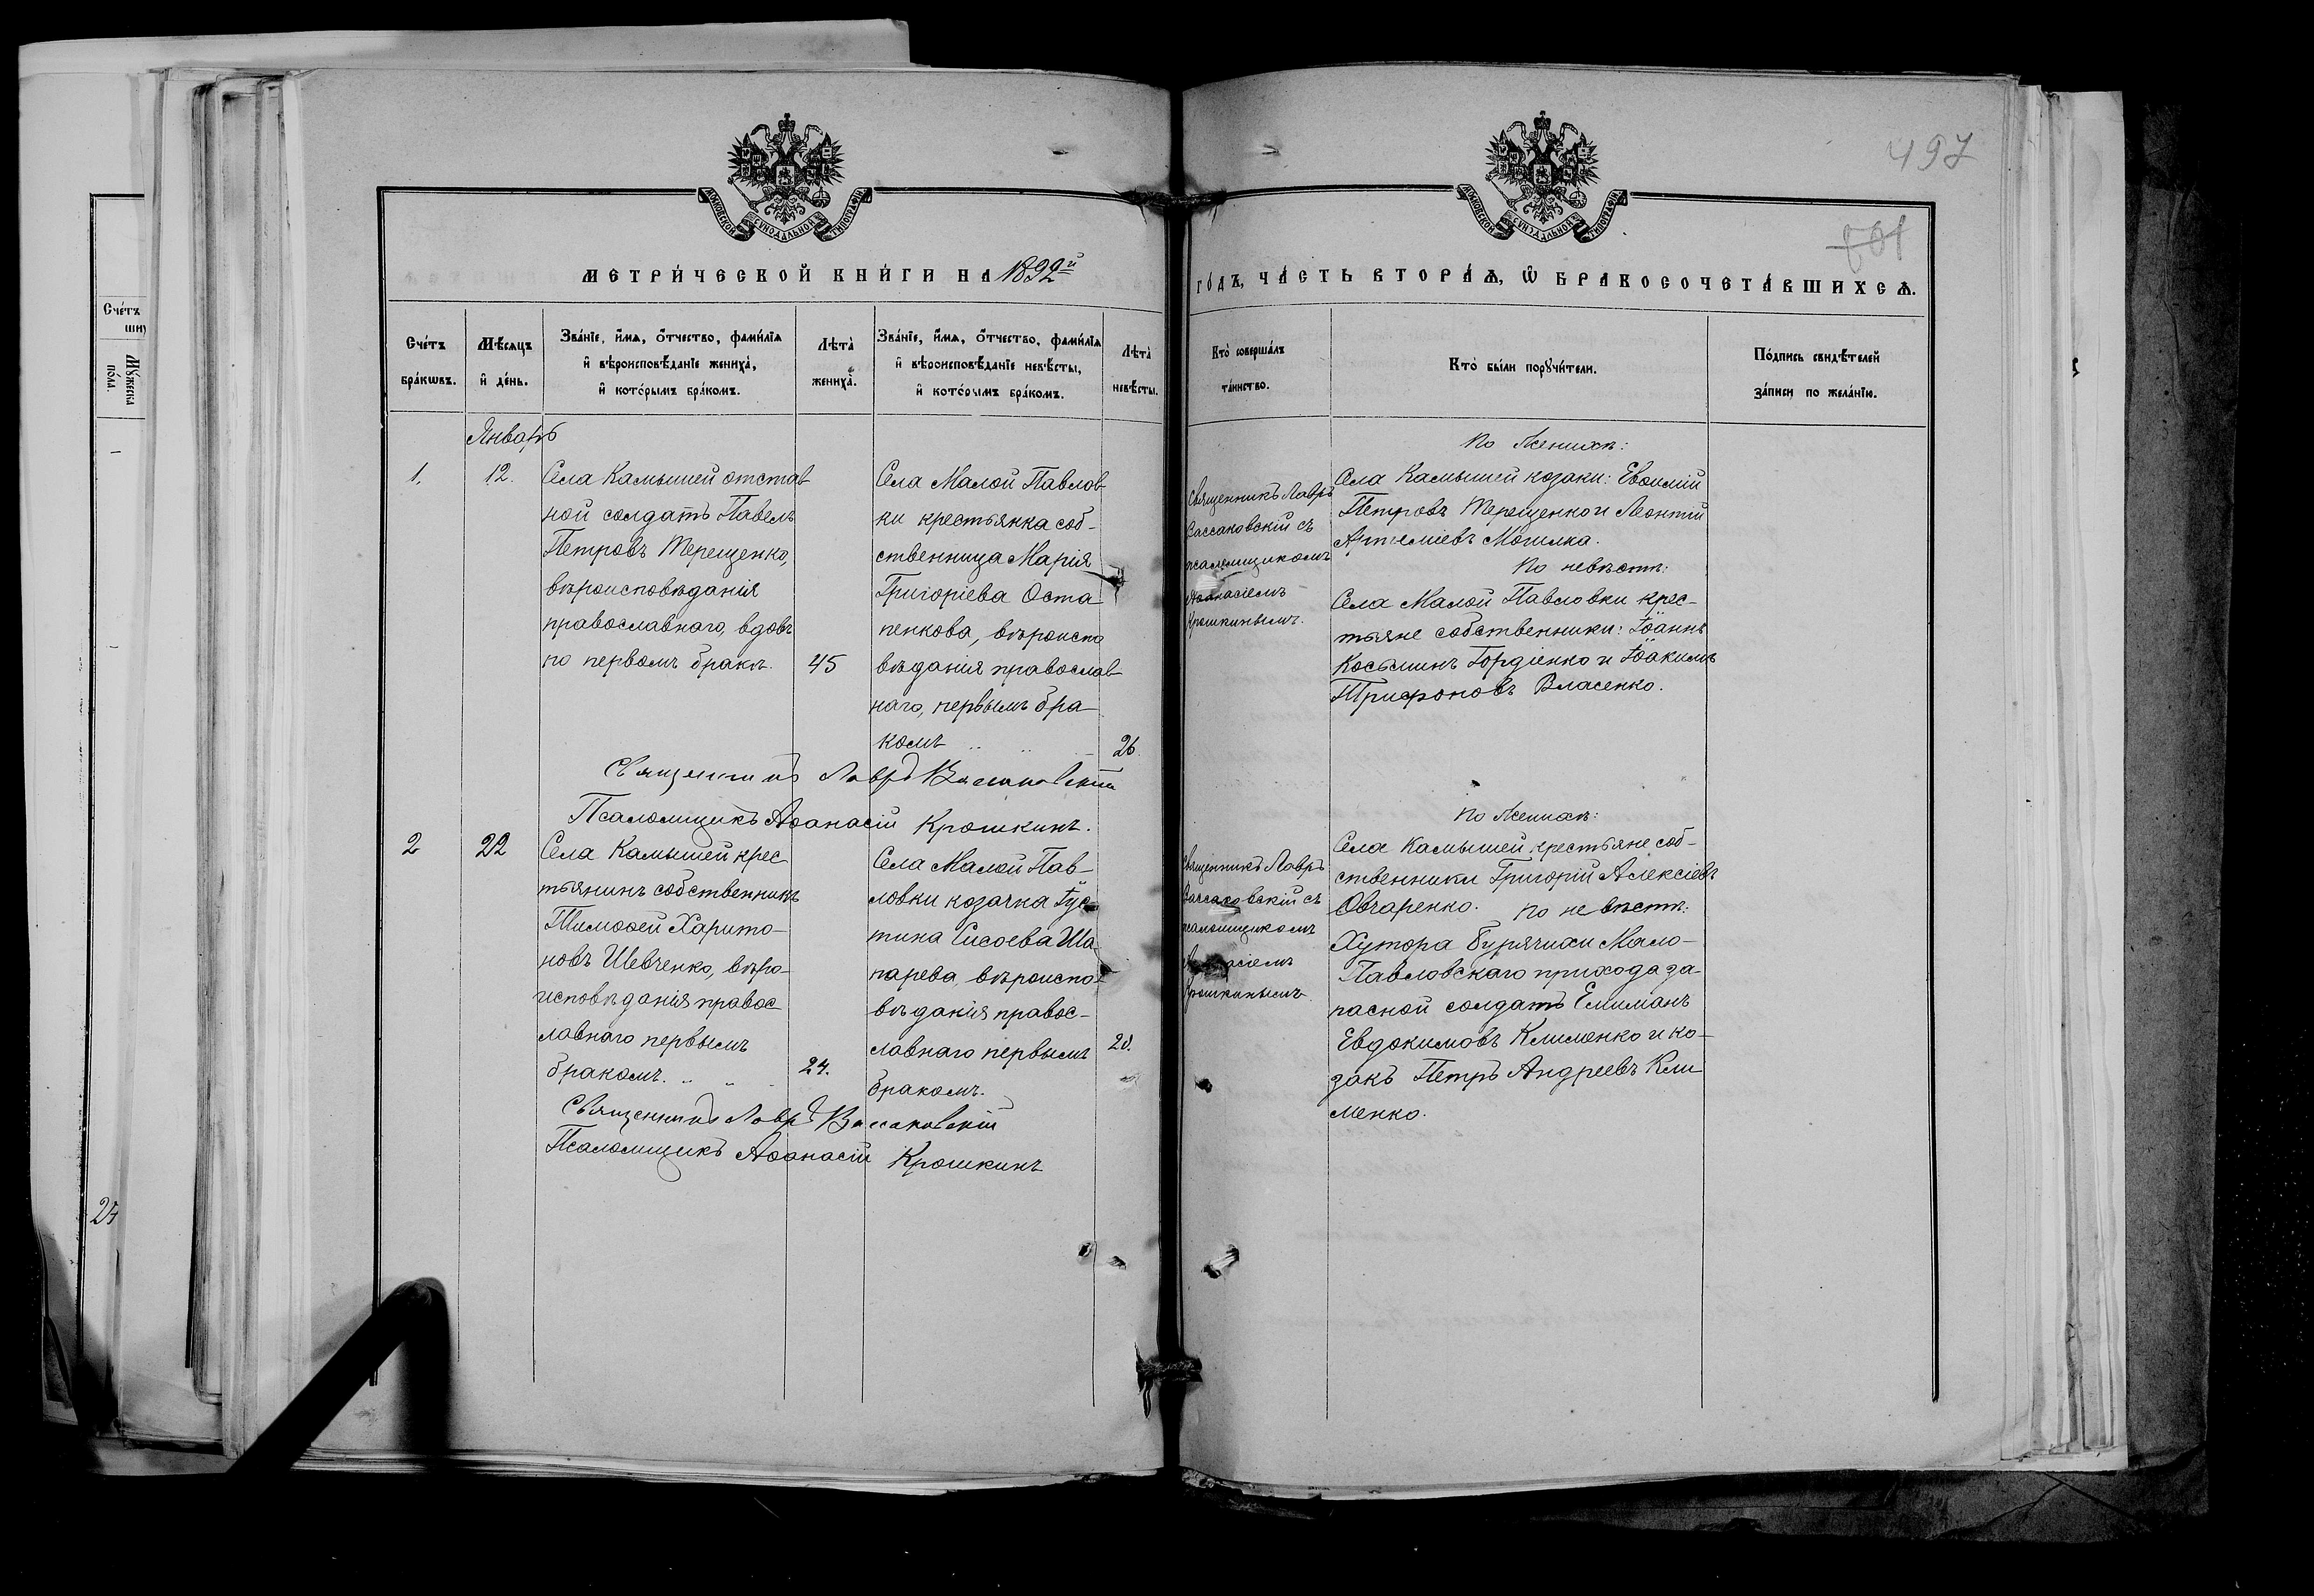 497
501
МОСКОВСКОЙ СѴНОДАЛЬНОЙ ТИПОГРАФІИ
МОСКОВСКОЙ СѴНОДАЛЬНОЙ ТИПОГРАФІИ
МЕТРИ́ЧЕСКОЙ КНИ́ГИ НА 1892й
ГО́ДЪ, ЧА́СТЬ ВТОРА́Ѧ, Ѽ БРАКОСОЧЕТА́ВШИХСѦ.
Сче́тъ бра́кѡвъ.
Мѣ́сяцъ и҆ де́нь.
Зва́нїе, и҆́мѧ, ѻ҆́тчество, фами́лїѧ
и҆ вѣроисповѣ́данїе жениха̀,
и҆ кото́рымъ бра́комъ.
Лѣта̀ жениха̀.
Зва́нїе, и҆́мѧ, ѻ҆́тчество, фами́лїѧ
и҆ вѣроисповѣ́данїе невѣ́сты,
и҆ кото́рымъ бра́комъ.
Лѣта̀ невѣ́сты.
Кто̀ соверша́лъ та́инство.
Кто̀ бы́ли порꙋчи́тели.
По́дпись свидѣ́телей за́писи по жела́нїю.
Январь
1.
12.
Села Камышей отстав
ной солдатъ Павелъ
Петровъ Терещенко,
вѣроисповѣданія
православнаго, вдовъ
по первомъ бракѣ.
45
Села Малой Павлов-
ки крестьянка соб-
ственница Марія
Григоріева Оста
пенкова, вѣроиспо
вѣданія православ-
наго, первымъ бра-
комъ
26.
Священникъ Лавръ
Вассаковскій съ
псаломщикомъ
Аѳанасіемъ
Крошкинымъ.
По женихѣ:
Села Камышей козаки: Евѳимій
Петровъ Терещенко и Леонтій
Артеміевъ Могилка.
По невѣстѣ:
Села Малой Павловки крес-
тьяне собственники: Іоаннъ
Косьминъ Гордіенко и Іоакимъ
Трифоновъ Власенко.
Священникъ Лавръ Вассаковскій
Псаломщикъ Аѳанасій Крошкинъ.
2
22
Села Камышей крес
тьянинъ собственникъ
Тимоѳей Харито-
новъ Шевченко, вѣро-
исповѣданія правос
лавнаго первымъ
бракомъ.
24.
Села Малой Пав-
ловки козачка Іус-
тина Сисоева Ша-
парева, вѣроиспо-
вѣданія правос-
лавнаго первымъ
бракомъ.
20.
Священникъ Лавръ
Вассаковскій съ
псаломщикомъ
Аѳанасіемъ
Крошкинымъ
По женихѣ:
Села Камышей крестьяне соб-
ственники Григорій Алексіевъ
Овчаренко. По невѣстѣ:
Хутора Бурячихи Мало-
Павловскаго прихода за-
пасной солдатъ Емиліанъ
Евдокимовъ Клименко и ко-
закъ Петръ Андреевъ Кли
менко.
Священникъ Лавръ Вассаковскій
Псаломщикъ Аѳанасій Крошкинъ